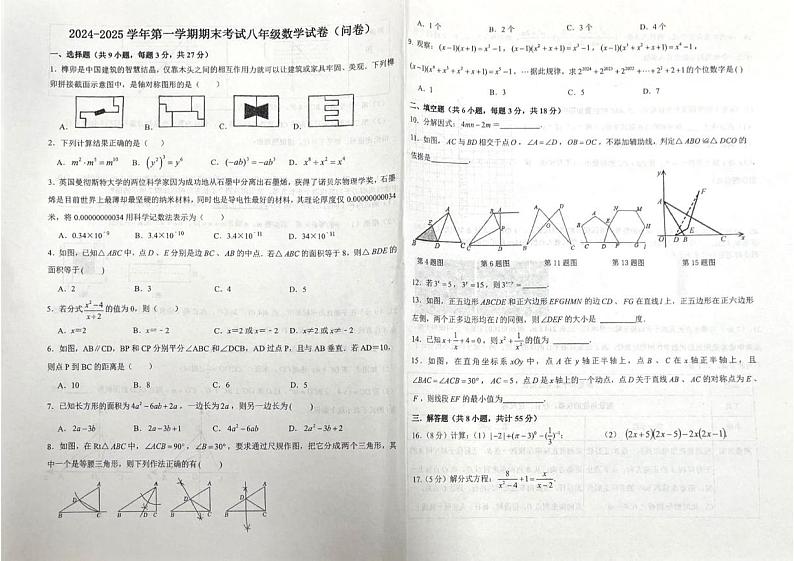 2024-2025 学年第一学期期末考试八年级数学试卷（问卷）
一、选择题（共 9 小题，每题 3 分，共 27 分）
1．榫卯是中国建筑的智慧结晶，仅靠木头之间的相互作用力就可以让建筑或家具牢固、美观．下列榫
卯拼接截面示意图中，是轴对称图形的是（ ）
A． B． C． D．
2．下列计算结果正确的是（ ）
A．m²·m⁵=m¹⁰ B．(y²)³=y⁶ C．(-ab)³=-ab³ D．x⁸÷x²=x⁴
3．英国曼彻斯特大学的两位科学家因为成功地从石墨中分离出石墨烯，获得了诺贝尔物理学奖，石墨
烯是目前世界上最薄却最坚硬的纳米材料，同时也是导电性最好的材料，其理论厚度仅 0.00000000034
米，将 0.00000000034 用科学记数法表示为（ ）
A．0.34×10⁻⁹ B．3.4×10⁻¹⁰ C．3.4×10⁻¹¹ D．34×10⁻¹¹
4．如图，已知△ABC 中，点 D 、E 分别是边 BC 、AB 的中点．若△ABC 的面积等于 8，则△BDE 的
面积等于( )
A．2 B．3 C．4 D．5
5．若分式 (x²-4)/(x+2) 的值为 0，则（ ）
A．x=2 B．x=-2 C．x=2 或 x=-2 D．x≠2 或 x≠-2
6．如图，AB∥CD，BP 和 CP 分别平分∠ABC 和∠DCB，AD 过点 P，且与 AB 垂直．若 AD=10，
则点 P 到 BC 的距离是（ ）
A．10 B．8 C．6 D．5
7．已知长方形的面积为 4a²-6ab+2a，一边长为 2a，则另一边长为( )
A．2a-3b B．2a-3b+1 C．4a²-6ab D．4a-6b+2
8．如图，在 Rt△ABC 中，∠ACB=90°，∠B=30°，要求通过尺规作图，把它分成两个三角形，其
中一个是等腰三角形，则下列作法正确的有（ ）
A．1 个 B．2 个 C．3 个 D．4 个
9．观察：(x-1)(x+1)=x²-1，(x-1)(x²+x+1)=x³-1，(x-1)(x³+x²+x+1)=x⁴-1，
(x-1)(x⁴+x³+x²+x+1)=x⁵-1，⋯据此规律，求 2²⁰²⁴+2²⁰²³+2²⁰²²+⋯+2²+2+1 的个位数字是( )
A．1 B．3 C．5 D．7
二、填空题（共 6 小题，每题 3 分，共 18 分）
10．分解因式：4mn-2m=________．
11．如图，AC 与 BD 相交于点 O，∠A=∠D，OB=OC，不添加辅助线，判定△ABO≌△DCO 的
依据是________．
第 4 题图 第 6 题图 第 11 题图 第 13 题图 第 15 题图
12．若 3ˣ=5，3ʸ=15，则 3ʸ⁻ˣ=______．
13．如图，正五边形 ABCDE 和正六边形 EFGHMN 的边 CD 、FG 在直线 l 上，正五边形在正六边形
左侧，两个正多边形均在 l 的同侧，则∠DEF 的大小是______度．
15．如图，在直角坐标系 xOy 中，点 A 在 y 轴正半轴上，点 B 、C 在 x 轴正半轴上，且
∠BAC=∠ACB=30°，AC=5，点 D 是 x 轴上的一个动点，点 D 关于直线 AB 、AC 的对称点为 E 、
F，则线段 EF 的最小值为________．
三、解答题（共 8 小题，共计 55 分）
17．（5 分）解分式方程：8/(x²-4)+1=x/(x-2)．